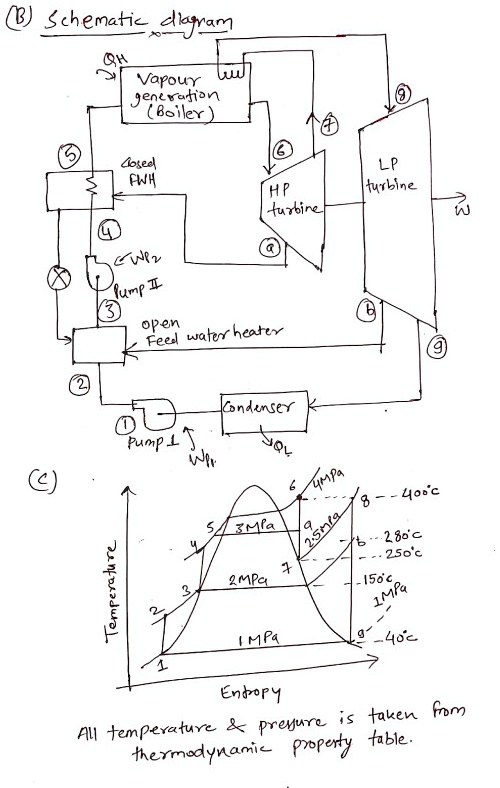 (B) Schematic diagram
QH
Vapour
generation
(Boiler)
8
7
6
5
Closed
FWH
LP
turbine
HP
turbine
W
4
a
WP2
Pump II
3
b
open
Feed water heater
9
2
Condenser
1
Pump I
WP1
QL
(C)
Temperature
6
4MPa
8
400°C
5
3MPa
a
2.5MPa
4
b
280°C
7
250°C
3
2MPa
150°C
2
1MPa
1MPa
9
40°C
1
Entropy
All temperature & pressure is taken from
thermodynamic property table.